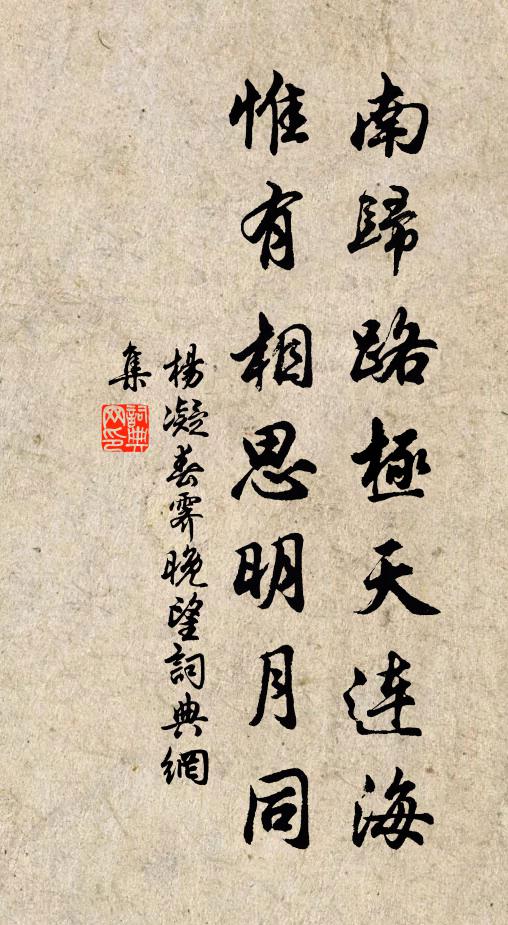 南歸路極天連海
惟有相思明月同
楊凝春霽晚望詞典網
集
詞典
网印